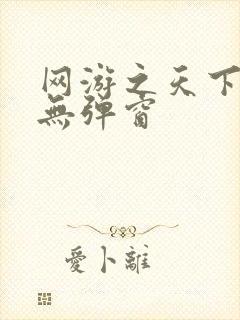 网游之天下
無弹窗
愛卜離